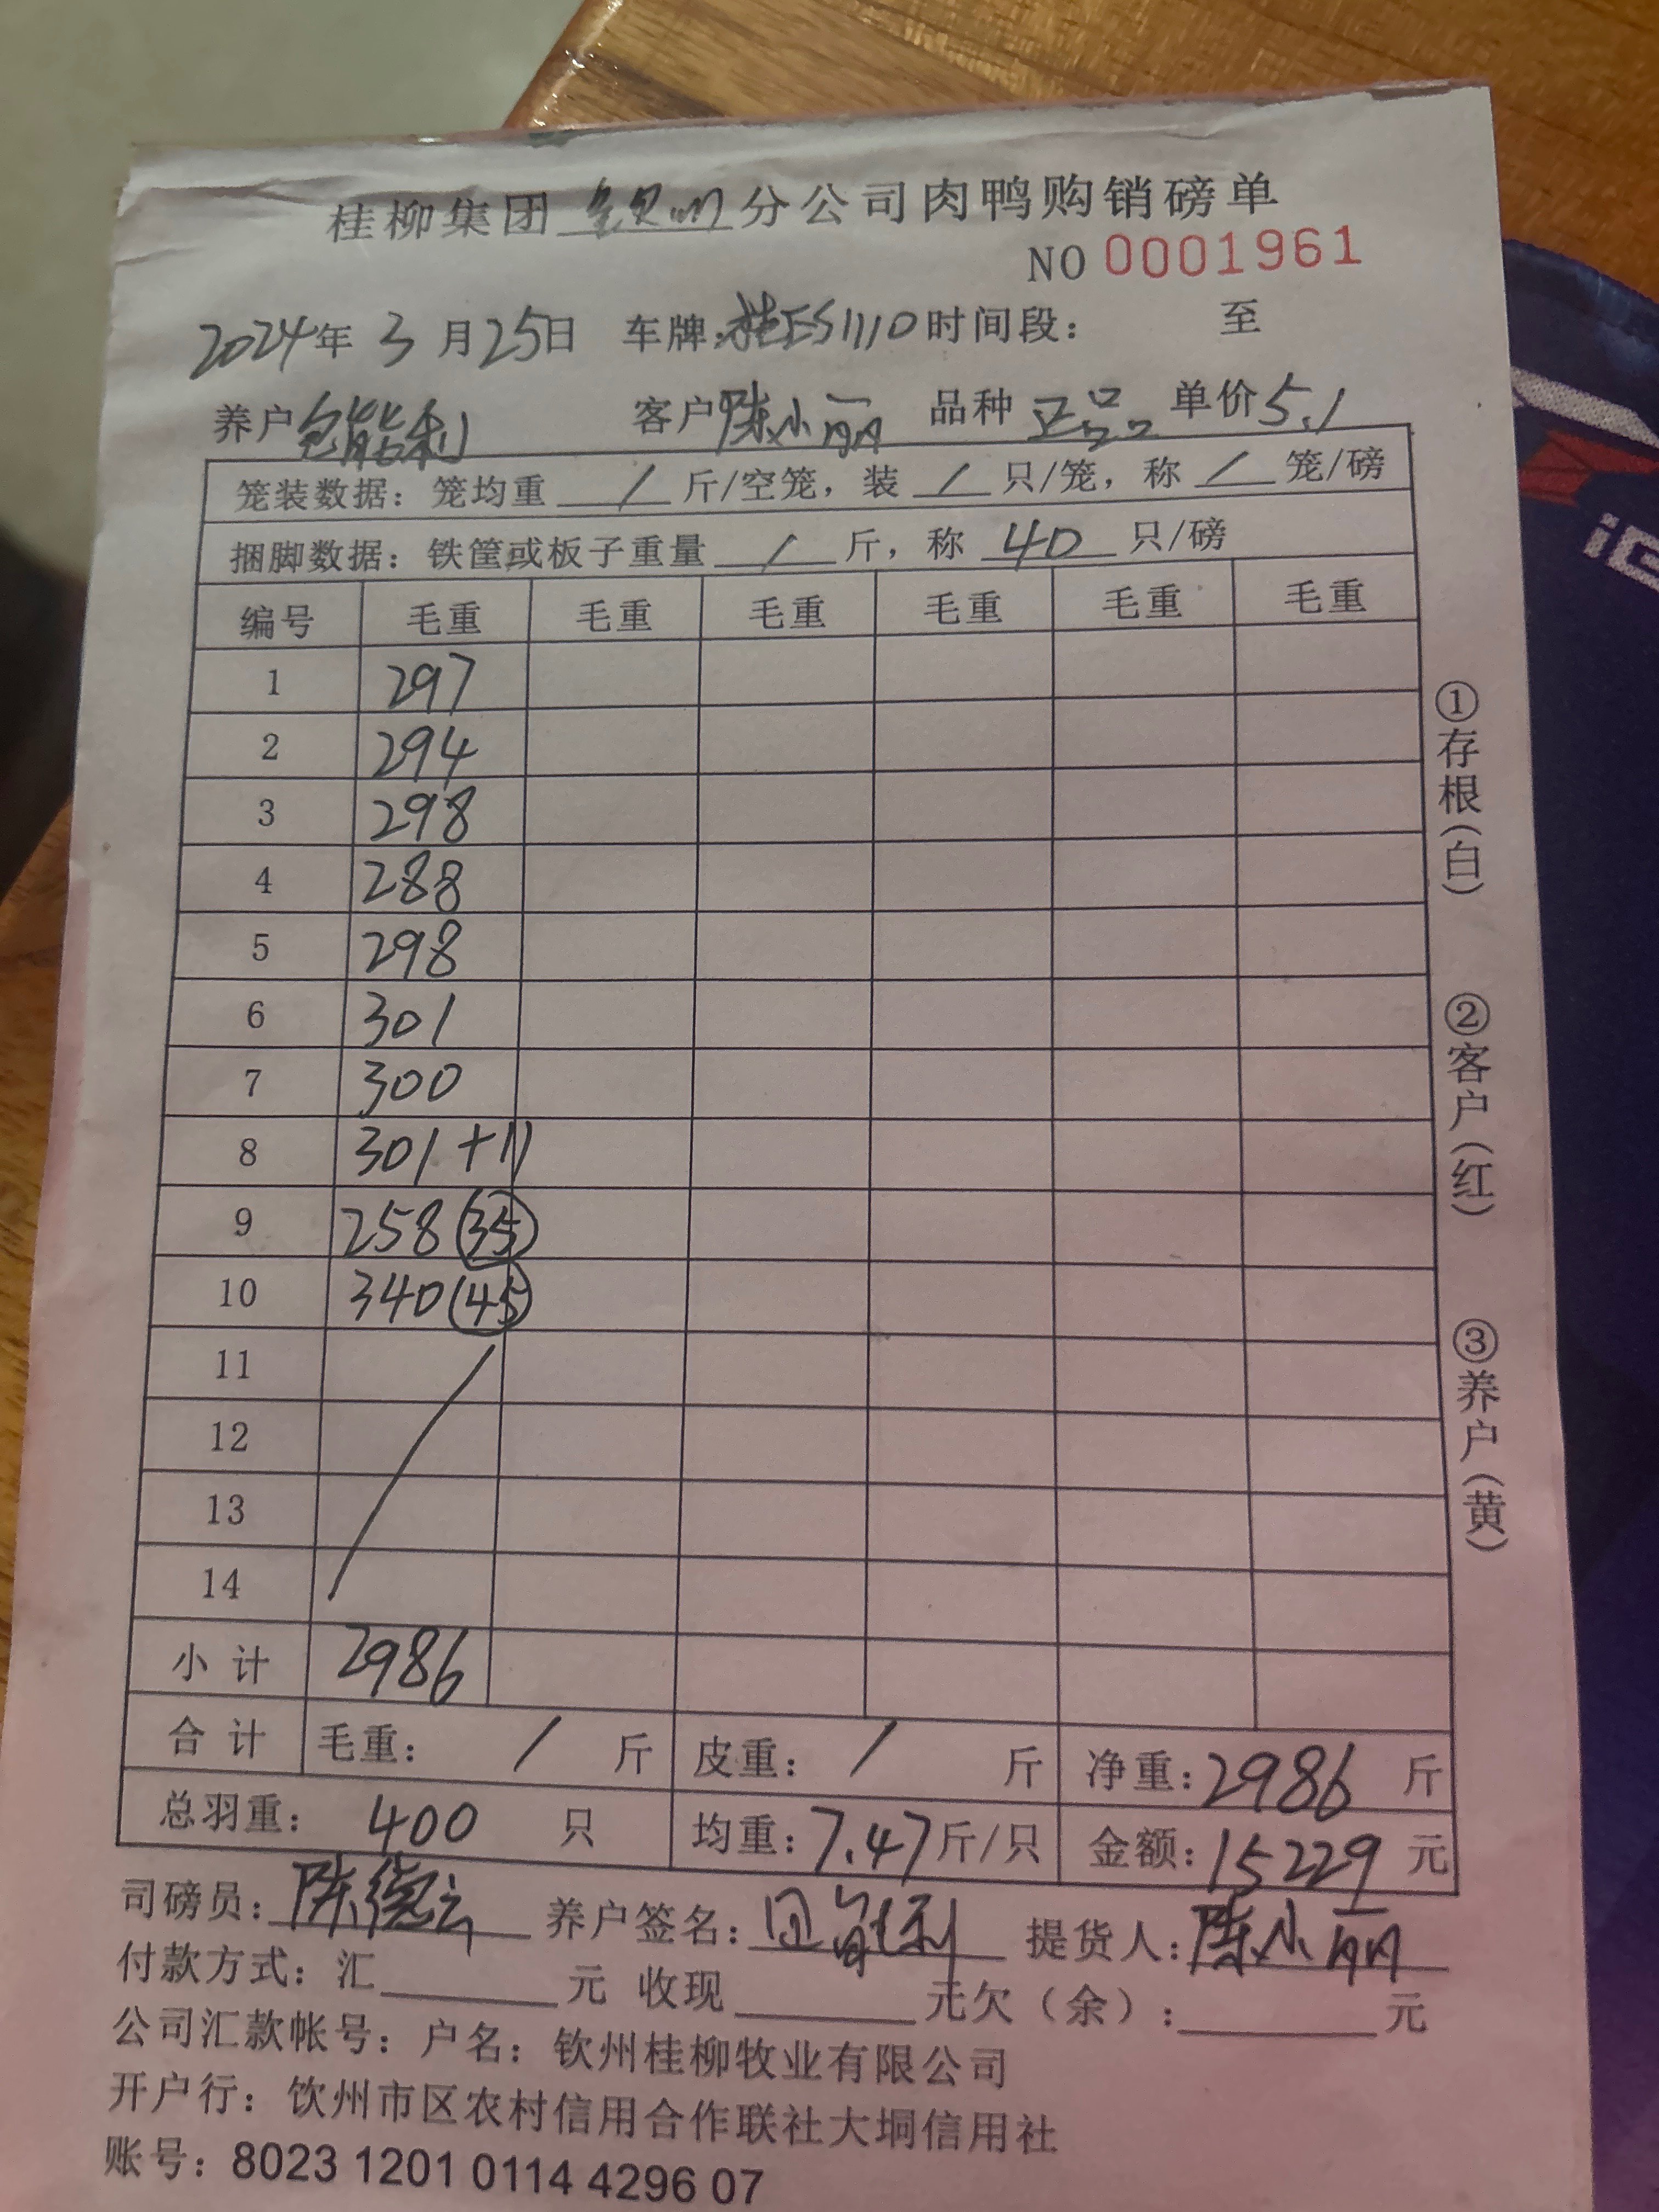 桂柳集团 钦州 分公司肉鸭购销磅单
NO 0001961
2024年 3 月 25日 车牌:桂ES1110 时间段： 至
养户 能利 客户 陈小丽 品种 正品 单价 5.1
笼装数据：笼均重 / 斤/空笼，装 / 只/笼，称 / 笼/磅
捆脚数据：铁筐或板子重量 / 斤，称 40 只/磅
编号 毛重 毛重 毛重 毛重 毛重 毛重
1 297
2 294
3 298
4 288
5 298
6 301
7 300
8 301+11
9 258 (35)
10 340 (45)
11
12
13
14
小计 2986
合计 毛重： / 斤 皮重： / 斤 净重：2986 斤
总羽重： 400 只 均重：7.47斤/只 金额：15229 元
司磅员：陈德云 养户签名： 能利 提货人：陈小丽
付款方式：汇 元 收现 元欠（余）： 元
公司汇款帐号：户名：钦州桂柳牧业有限公司
开户行：钦州市区农村信用合作联社大垌信用社
账号：8023 1201 0114 4296 07
①存根（白）
②客户（红）
③养户（黄）
iG